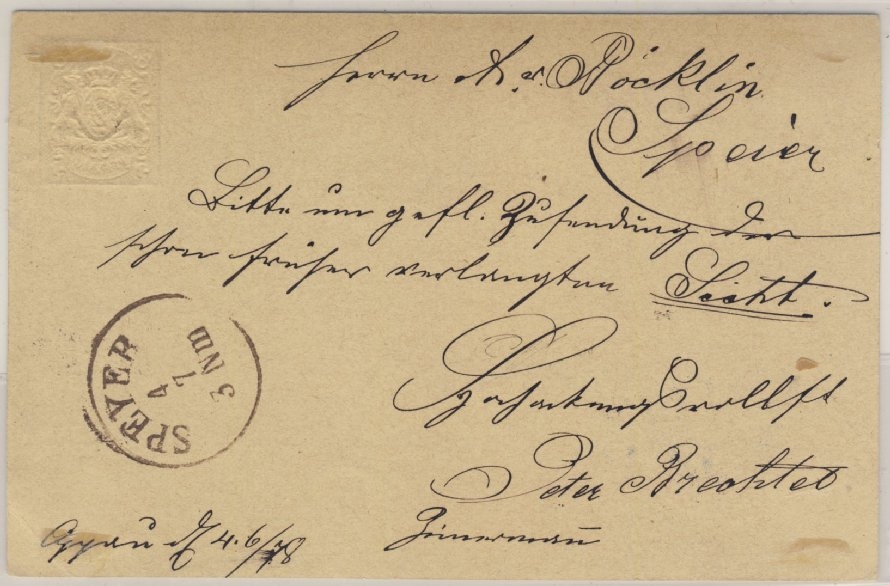 Herrn Röcklin
Speier
Bitte um gefl. Zusendung der
schon früher verlangten
Hochachtungsvollst
Peter Brechtel
Zimermann
SPEYER
4
7
3 NM
Oppau 4.6/78